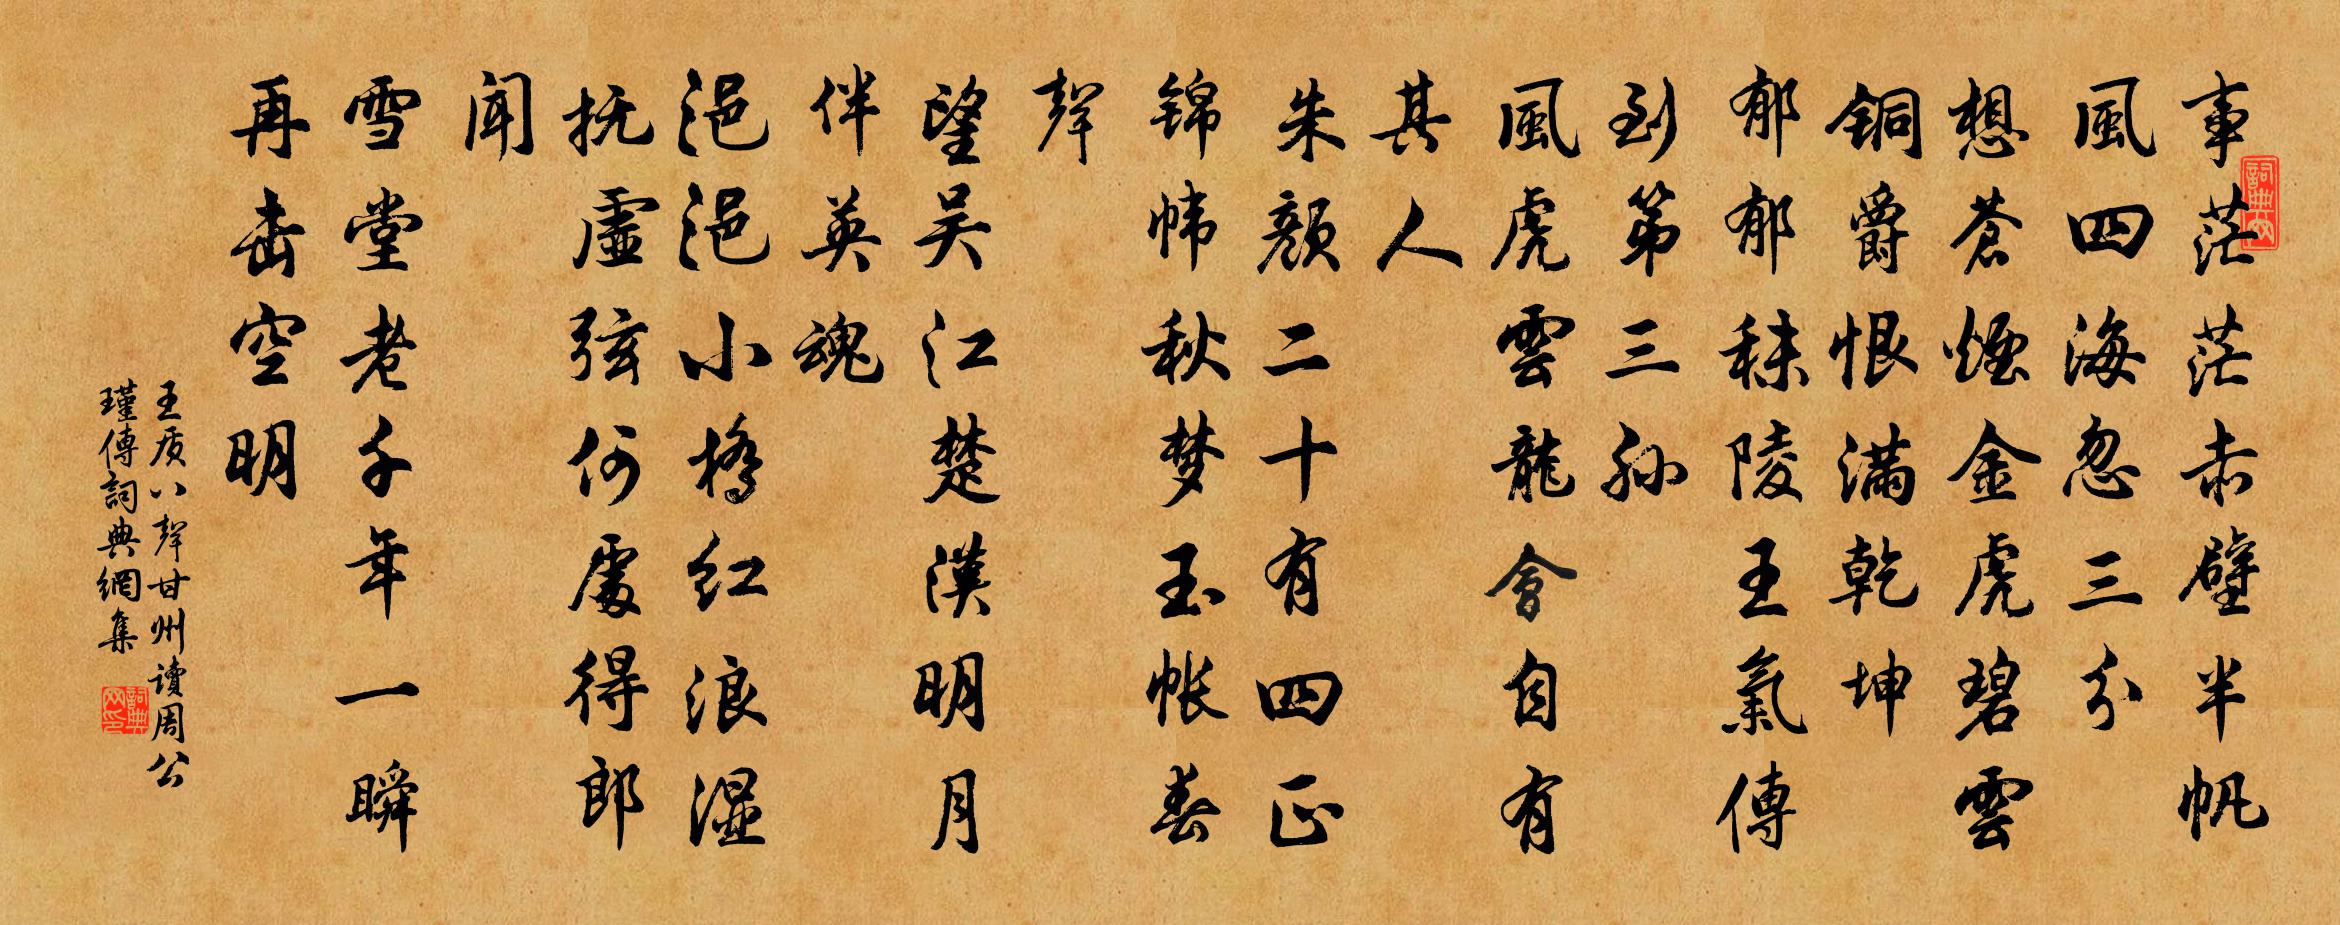 事茫茫赤壁半帆
風四海忽三分
想蒼煙金虎碧雲
铜爵恨满乾坤
郁郁秣陵王氣傳
到第三孙
風虎雲龍會自有
其人
朱颜二十有四正
锦帏秋梦玉帐春
聲
望吴江楚漢明月
伴英魂
浥浥小橋红浪湿
抚虚弦何處得郎
闻
雪堂老千年一瞬
再击空明
王质八聲甘州讀周公
瑾傳詞典網集
詞典网
詞典网印